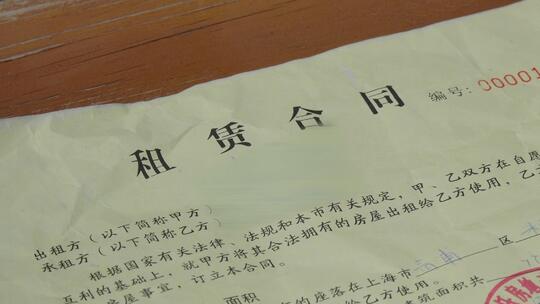 租赁合同
编号: 00001
出租方（以下简称甲方）
承租方（以下简称乙方）
根据国家有关法律、法规和本市有关规定，甲、乙双方在自愿
互利的基础上，就甲方将其合法拥有的房屋出租给乙方使用，乙方
房屋事宜，订立本合同。
的座落在上海市 区
面积 给乙方使用。
建筑面积共